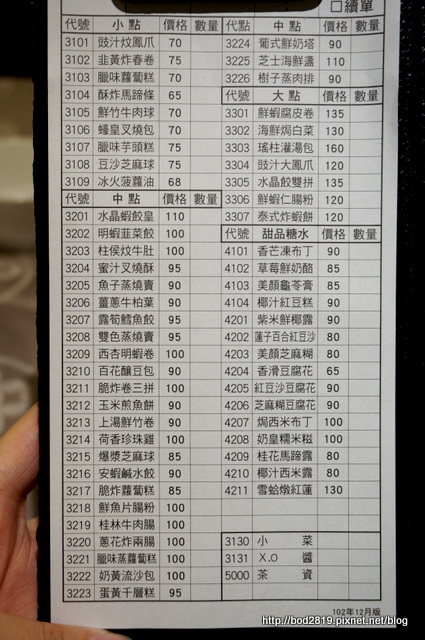 □續單
代號 小點 價格 數量
3101 豉汁炆鳳爪 70
3102 韭黃炸春卷 75
3103 臘味蘿蔔糕 70
3104 酥炸馬蹄條 65
3105 鮮竹牛肉球 70
3106 蠔皇叉燒包 70
3107 臘味芋頭糕 75
3108 豆沙芝麻球 75
3109 冰火菠蘿油 68
代號 中點 價格 數量
3201 水晶蝦餃皇 110
3202 明蝦韭菜餃 100
3203 柱侯炆牛肚 100
3204 蜜汁叉燒酥 95
3205 魚子蒸燒賣 90
3206 薑蔥牛柏葉 90
3207 露筍鱈魚餃 95
3208 雙色蒸燒賣 95
3209 西杏明蝦卷 100
3210 百花釀豆包 90
3211 脆炸卷三拼 100
3212 玉米煎魚餅 90
3213 上湯鮮竹卷 90
3214 荷香珍珠雞 100
3215 爆漿芝麻球 85
3216 安蝦鹹水餃 90
3217 脆炸蘿蔔糕 85
3218 鮮魚片腸粉 100
3219 桂林牛肉腸 100
3220 蔥花炸兩腸 100
3221 臘味蒸蘿蔔糕 100
3222 奶黃流沙包 100
3223 蛋黃千層糕 95
代號 中點 價格 數量
3224 葡式鮮奶塔 90
3225 芝士海鮮盞 110
3226 樹子蒸肉排 90
代號 大點 價格 數量
3301 鮮蝦腐皮卷 135
3302 海鮮焗白菜 130
3303 瑤柱灌湯包 160
3304 豉汁大鳳爪 120
3305 水晶餃雙拼 135
3306 鮮蝦仁腸粉 120
3307 泰式炸蝦餅 120
代號 甜品糖水 價格 數量
4101 香芒凍布丁 90
4102 草莓鮮奶酪 85
4103 美顏龜苓膏 85
4104 椰汁紅豆糕 90
4201 紫米鮮椰露 90
4202 蓮子百合紅豆沙 80
4203 美顏芝麻糊 80
4204 香滑豆腐花 65
4205 紅豆沙豆腐花 90
4206 芝麻糊豆腐花 90
4207 焗西米布丁 100
4208 奶皇糯米糍 100
4209 桂花馬蹄露 80
4210 椰汁西米露 80
4211 雪蛤燉紅蓮 130
3130 小菜
3131 X.O 醬
5000 茶資
102年12月版
http://bod2819.pixnet.net/blog